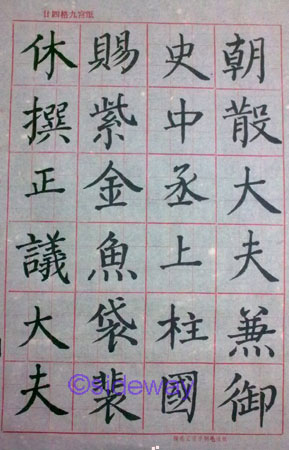 廿四格九宮紙
朝散大夫兼御
史中丞上柱國
賜紫金魚袋裴
休撰正議大夫
©sideway